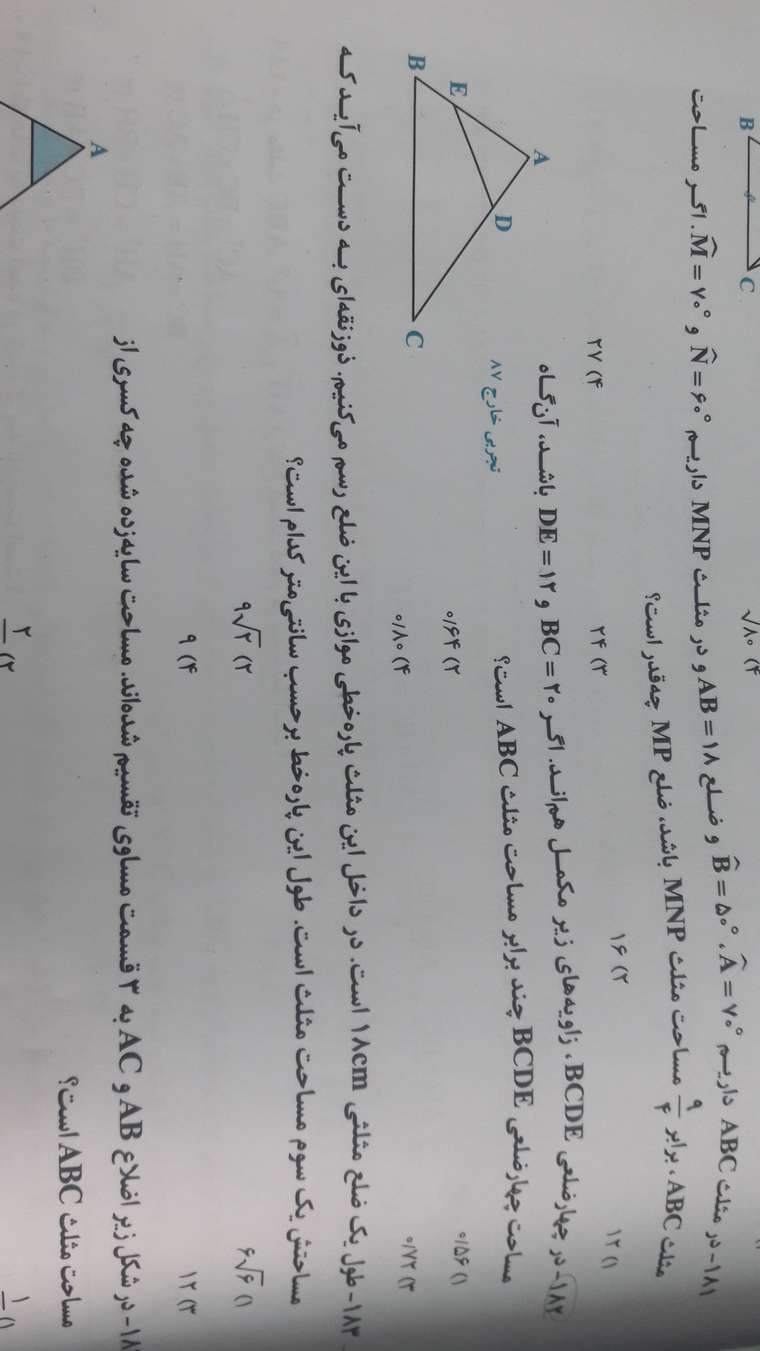 B
C
۴) √۸۰
۱۸۱- در مثلث ABC داریم Â = ۷۰°، B̂ = ۵۰° و ضلع AB = ۱۸ و در مثلث MNP داریم N̂ = ۶۰° و M̂ = ۷۰°. اگر مساحت
مثلث ABC، برابر ۹/۴ مساحت مثلث MNP باشد، ضلع MP چه‌قدر است؟
۱) ۱۲
۲) ۱۶
۳) ۲۴
۴) ۲۷
۱۸۲- در چهارضلعی BCDE، زاویه‌های زیر مکمل هم‌اند. اگر BC = ۲۰ و DE = ۱۲ باشد، آن‌گاه
مساحت چهارضلعی BCDE چند برابر مساحت مثلث ABC است؟
تجربی خارج ۸۷
۱) ۰/۵۶
۲) ۰/۶۴
۳) ۰/۷۲
۴) ۰/۸۰
A
D
E
B
C
۱۸۳- طول یک ضلع مثلثی ۱۸cm است. در داخل این مثلث پاره‌خطی موازی با این ضلع رسم می‌کنیم. ذوزنقه‌ای به دست می‌آید که
مساحتش یک سوم مساحت مثلث است. طول این پاره‌خط برحسب سانتی‌متر کدام است؟
۱) ۶√۶
۲) ۹√۲
۳) ۱۲
۴) ۹
در شکل زیر اضلاع AB و AC به ۳ قسمت مساوی تقسیم شده‌اند. مساحت سایه‌زده شده چه کسری از
مساحت مثلث ABC است؟
A